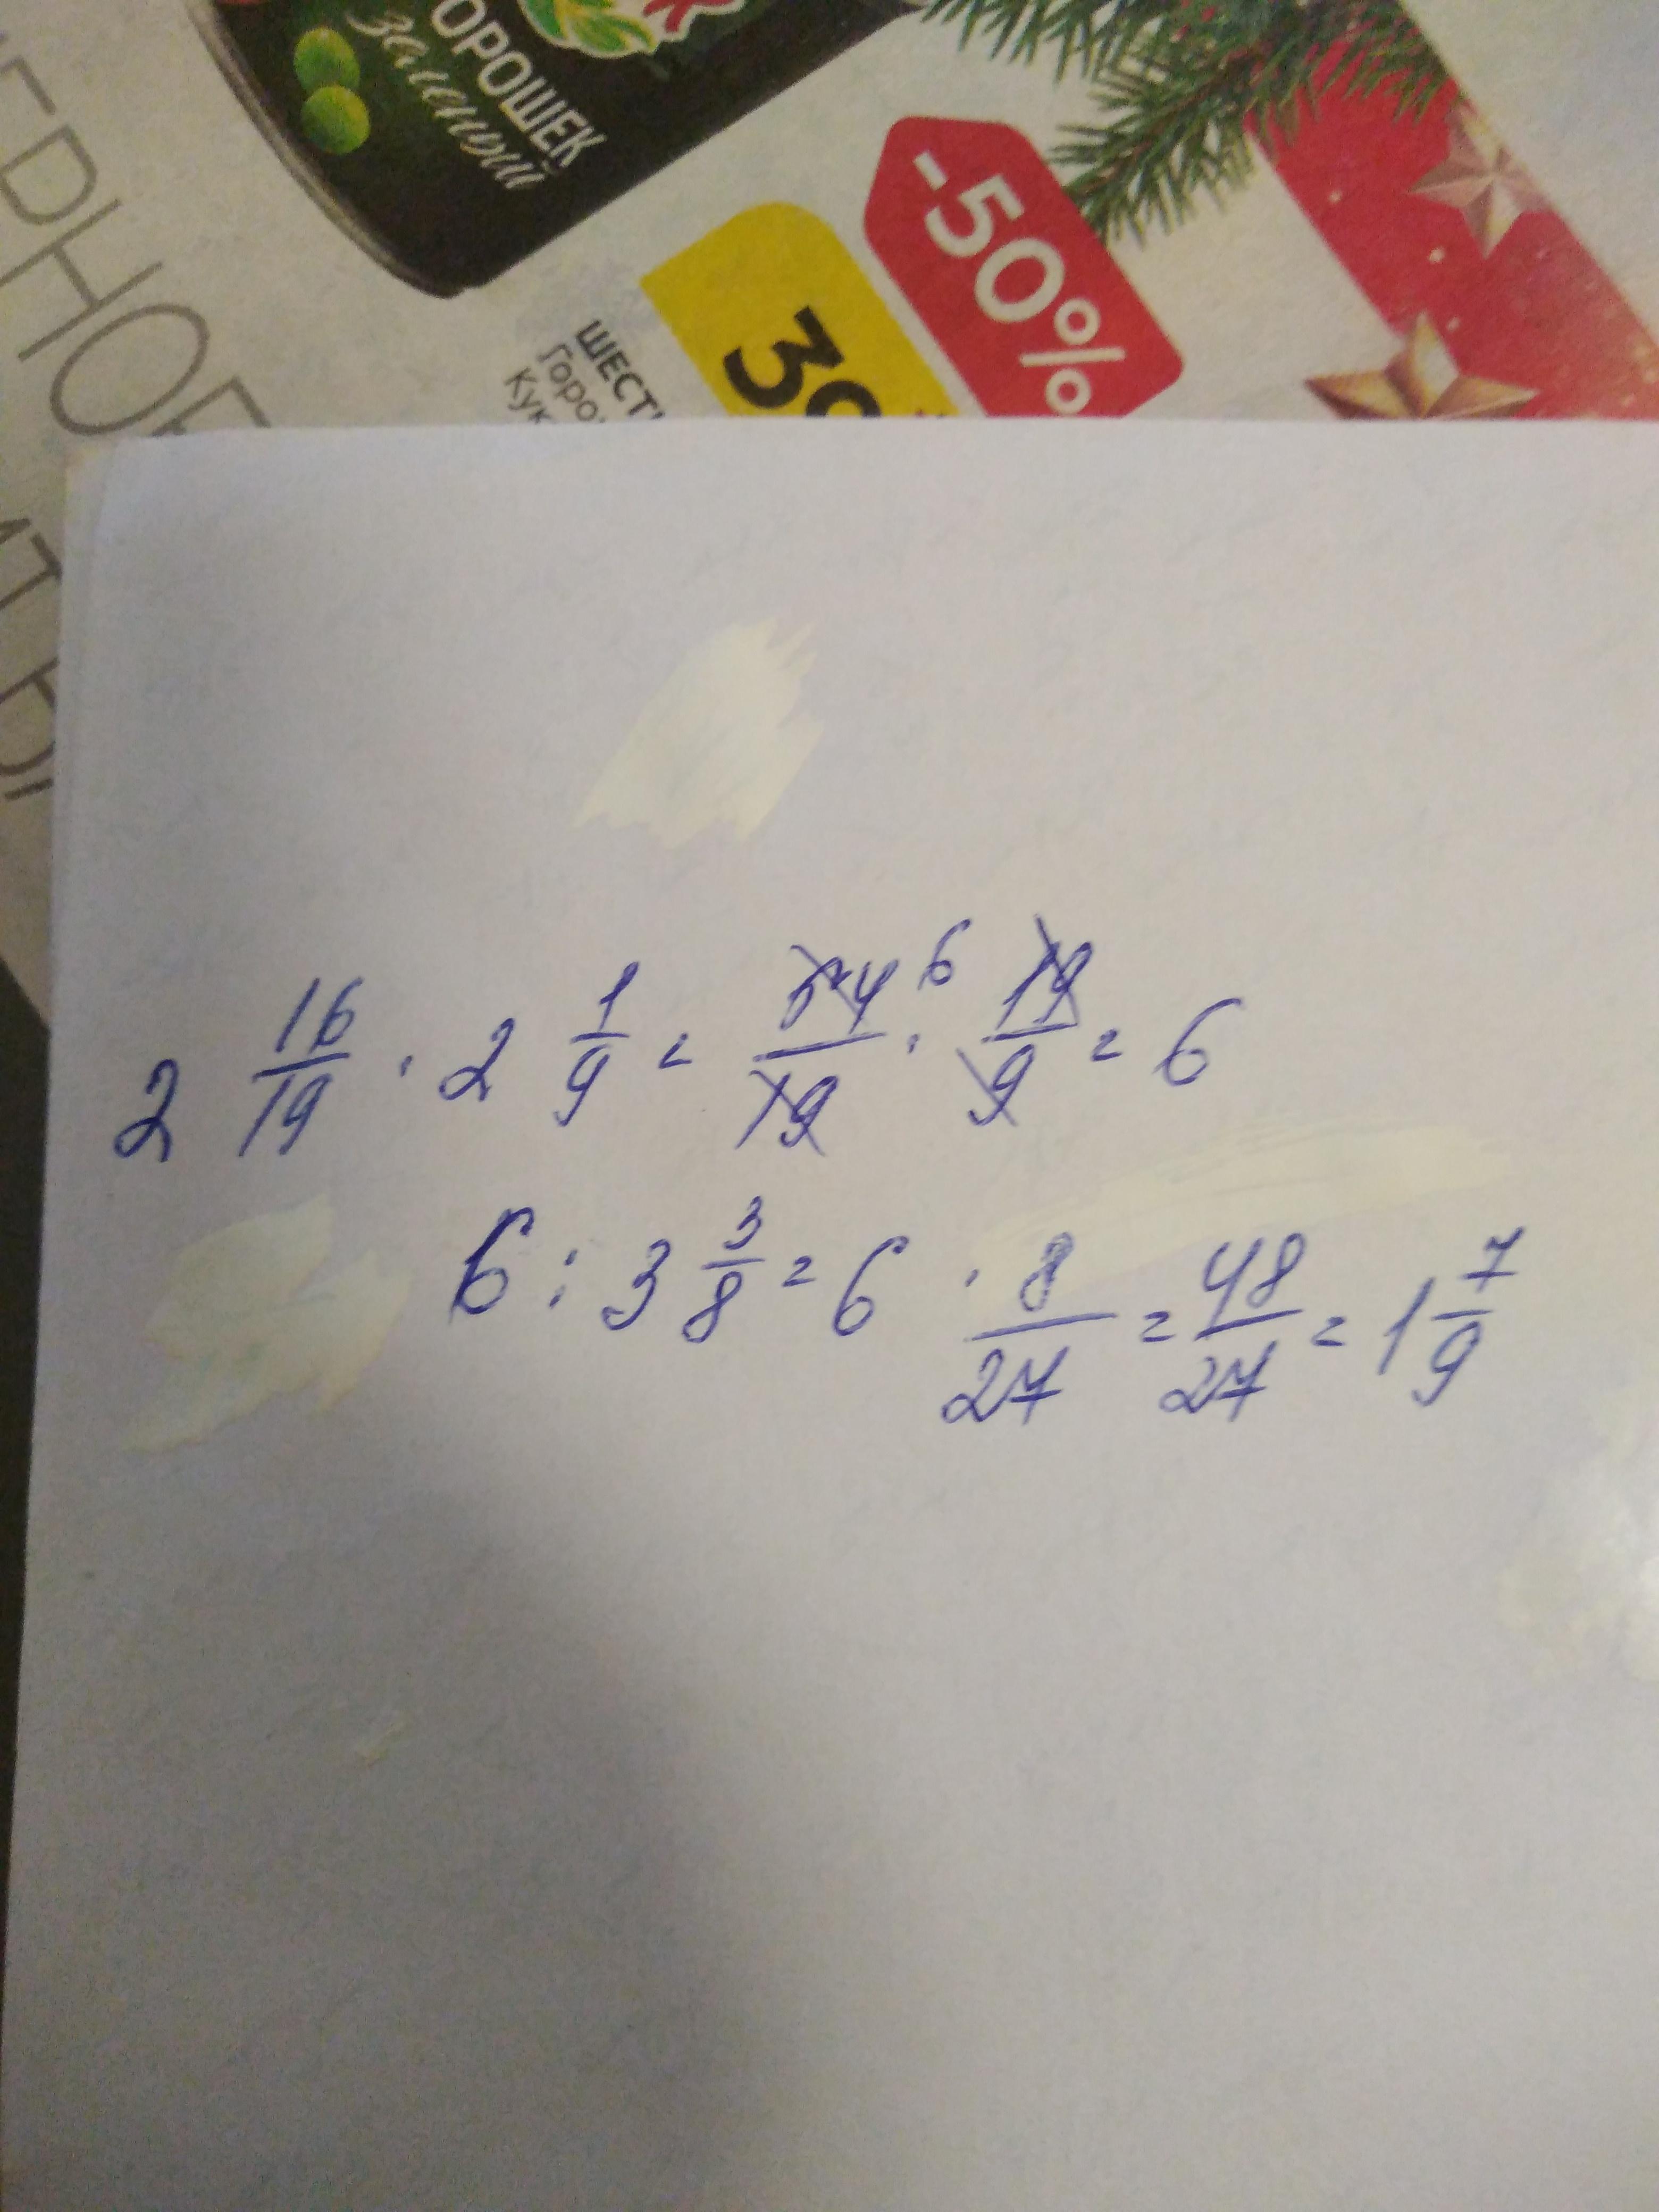 ОРОШЕК
зеленый
-50%
39
ШЕСТ
Горо
Кук
ЕРНОЕ
2 16/19 · 2 1/9 = 54/19 6 · 19/9 = 6
6 : 3 3/8 = 6 · 8/27 = 48/27 = 1 7/9